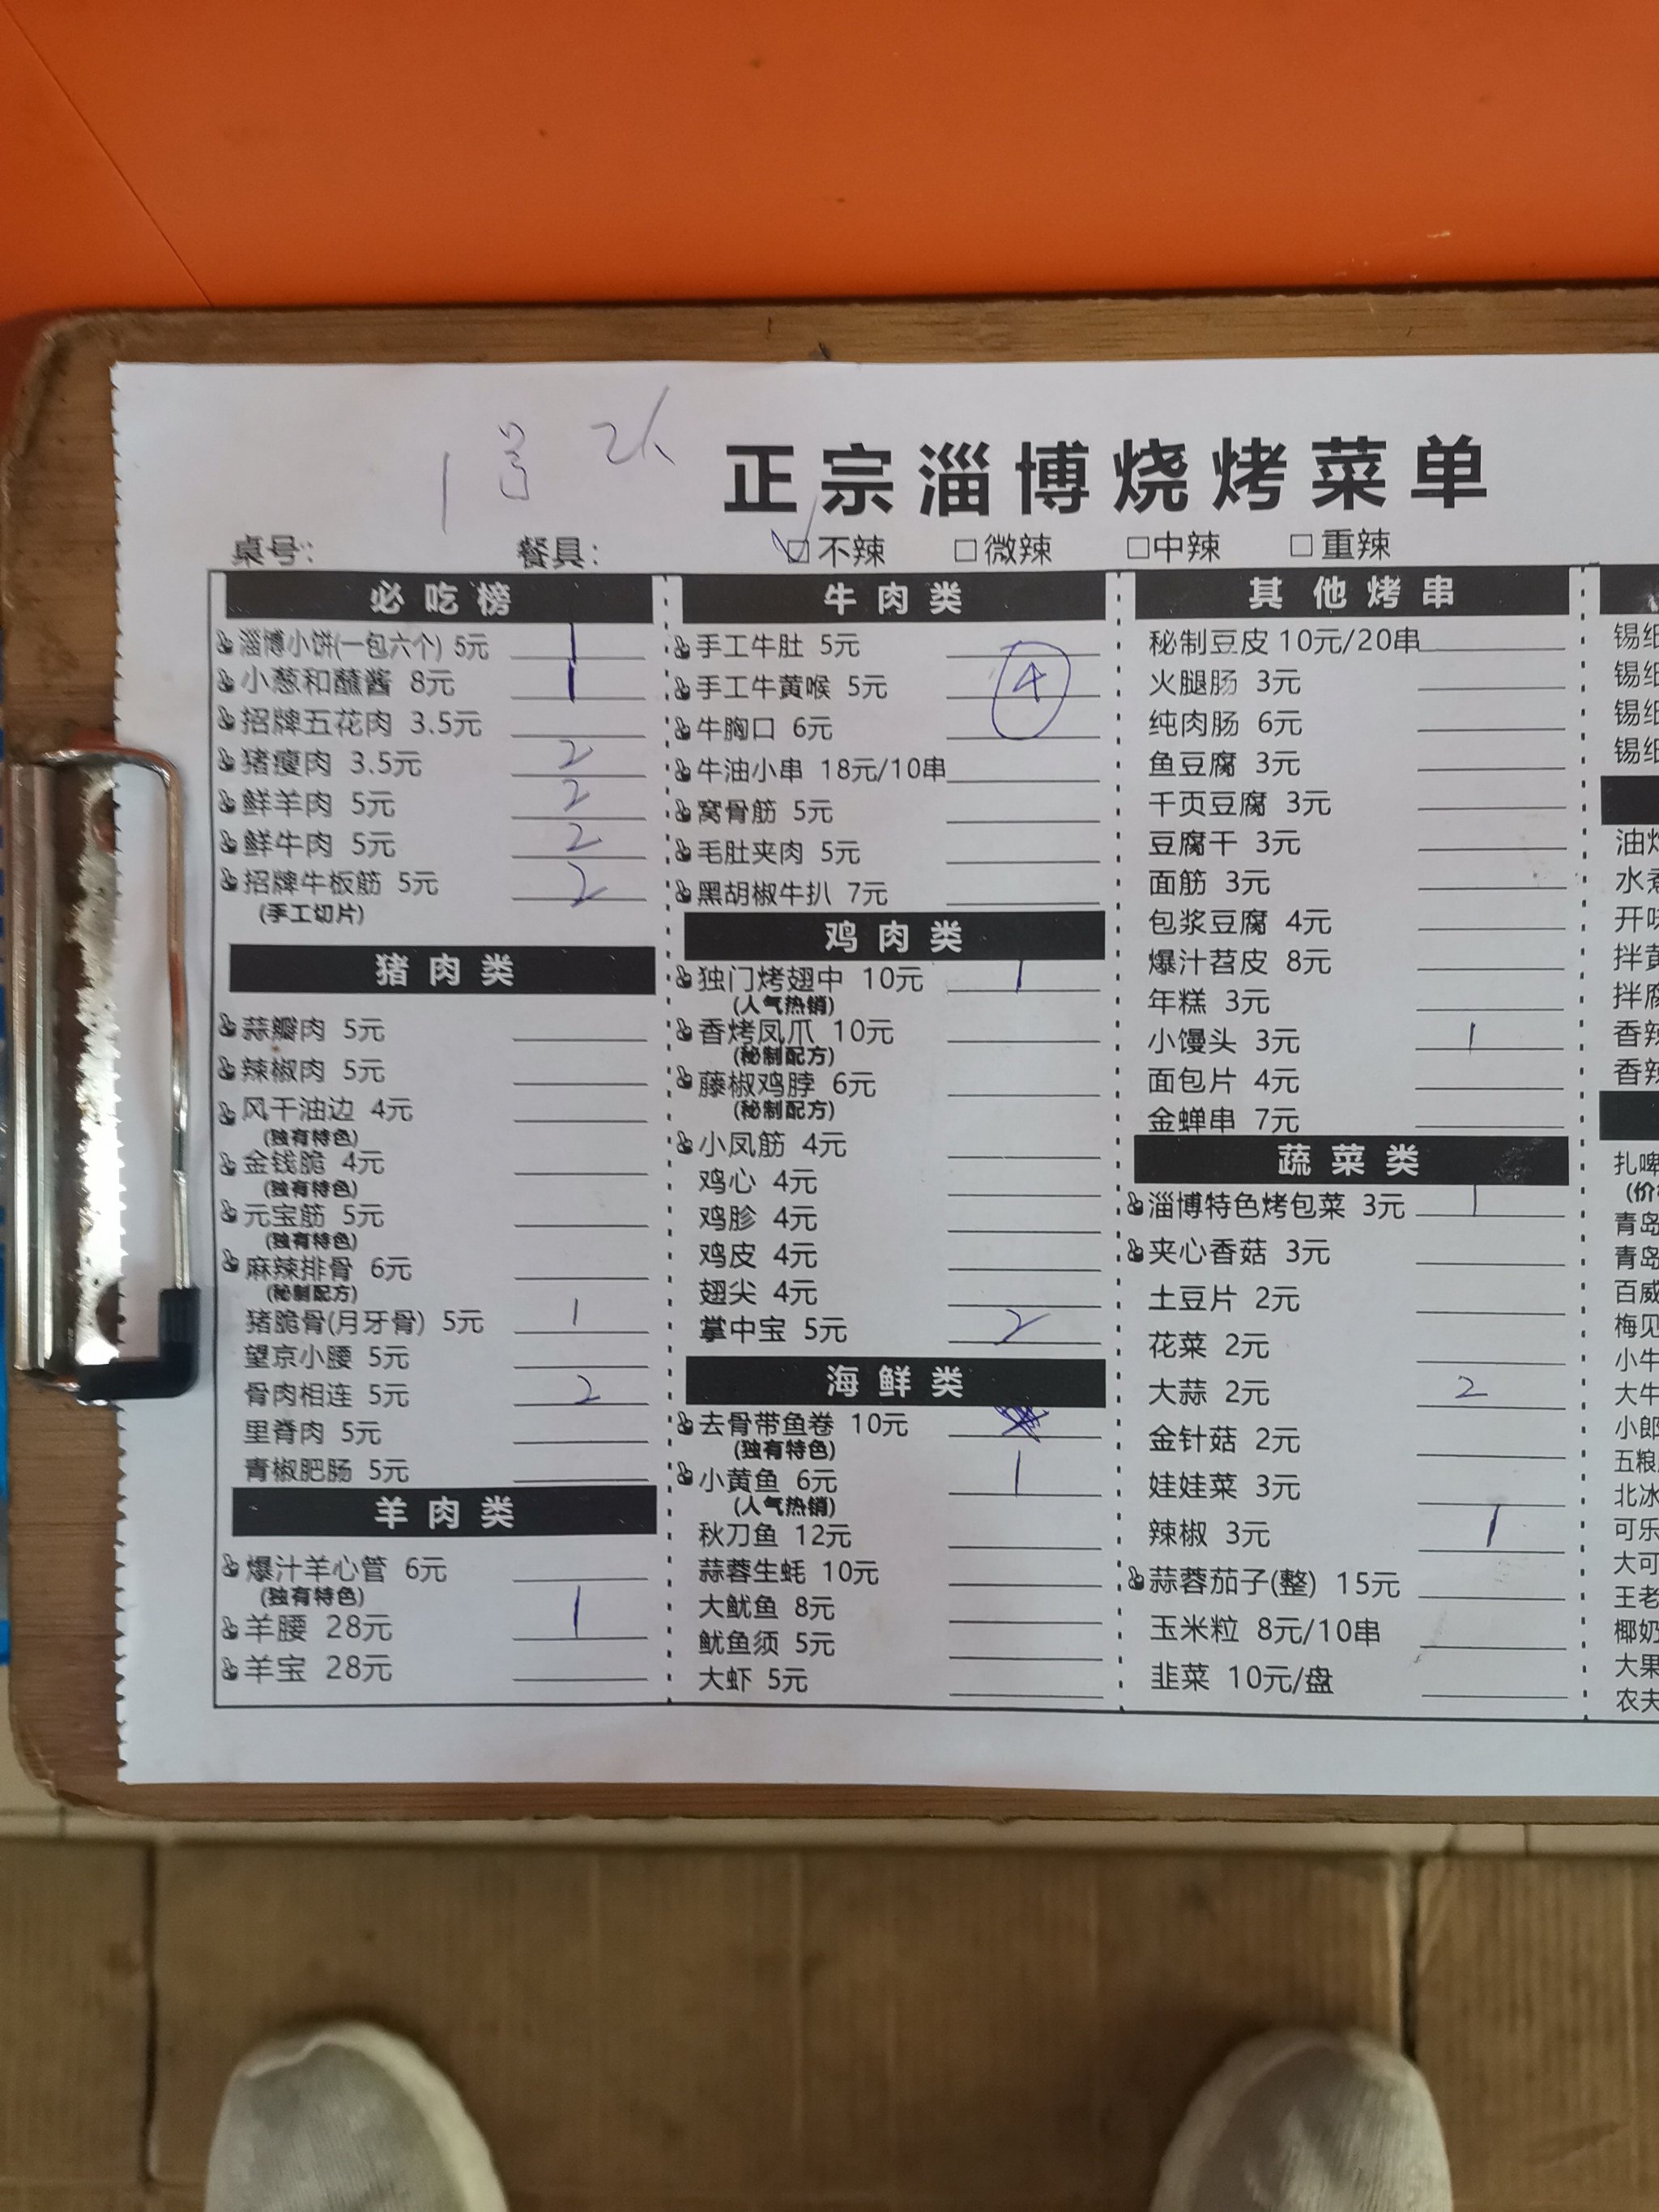 1号 2人
正宗淄博烧烤菜单
桌号: 餐具: □不辣 □微辣 □中辣 □重辣
必吃榜
淄博小饼(一包六个) 5元 1
小葱和蘸酱 8元 1
招牌五花肉 3.5元
猪瘦肉 3.5元 2
鲜羊肉 5元 2
鲜牛肉 5元 2
招牌牛板筋 5元 2
(手工切片)
猪肉类
蒜瓣肉 5元
辣椒肉 5元
风干油边 4元
(独有特色)
金钱脆 4元
(独有特色)
元宝筋 5元
(独有特色)
麻辣排骨 6元
(秘制配方)
猪脆骨(月牙骨) 5元 1
望京小腰 5元
骨肉相连 5元 2
里脊肉 5元
青椒肥肠 5元
羊肉类
爆汁羊心管 6元
(独有特色)
羊腰 28元 1
羊宝 28元
牛肉类
手工牛肚 5元
手工牛黄喉 5元 4
牛胸口 6元
牛油小串 18元/10串
窝骨筋 5元
毛肚夹肉 5元
黑胡椒牛扒 7元
鸡肉类
独门烤翅中 10元 1
(人气热销)
香烤凤爪 10元
(秘制配方)
藤椒鸡脖 6元
(秘制配方)
小凤筋 4元
鸡心 4元
鸡胗 4元
鸡皮 4元
翅尖 4元
掌中宝 5元 2
海鲜类
去骨带鱼卷 10元
(独有特色)
小黄鱼 6元 1
(人气热销)
秋刀鱼 12元
蒜蓉生蚝 10元
大鱿鱼 8元
鱿鱼须 5元
大虾 5元
其他烤串
秘制豆皮 10元/20串
火腿肠 3元
纯肉肠 6元
鱼豆腐 3元
千页豆腐 3元
豆腐干 3元
面筋 3元
包浆豆腐 4元
爆汁苕皮 8元
年糕 3元
小馒头 3元 1
面包片 4元
金蝉串 7元
蔬菜类
淄博特色烤包菜 3元 1
夹心香菇 3元
土豆片 2元
花菜 2元
大蒜 2元 2
金针菇 2元
娃娃菜 3元
辣椒 3元 1
蒜蓉茄子(整) 15元
玉米粒 8元/10串
韭菜 10元/盘
锡纸
锡纸
锡纸
锡纸
油炸
水煮
开味
拌黄
拌腐
香辣
香辣
扎啤
(价
青岛
青岛
百威
梅见
小牛
大牛
小郎
五粮
北冰
可乐
大可
王老
椰奶
大果
农夫